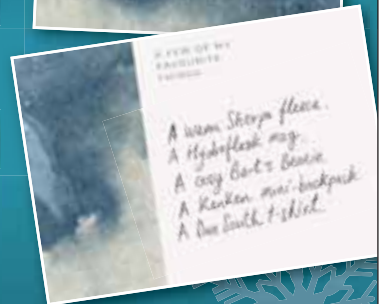 A FEW OF MY
FAVOURITE
THINGS
A warm Sherpa fleece.
A Hydroflask mug.
A cosy Bart's Beanie
A Kanken mini-backpack
A Due South t-shirt